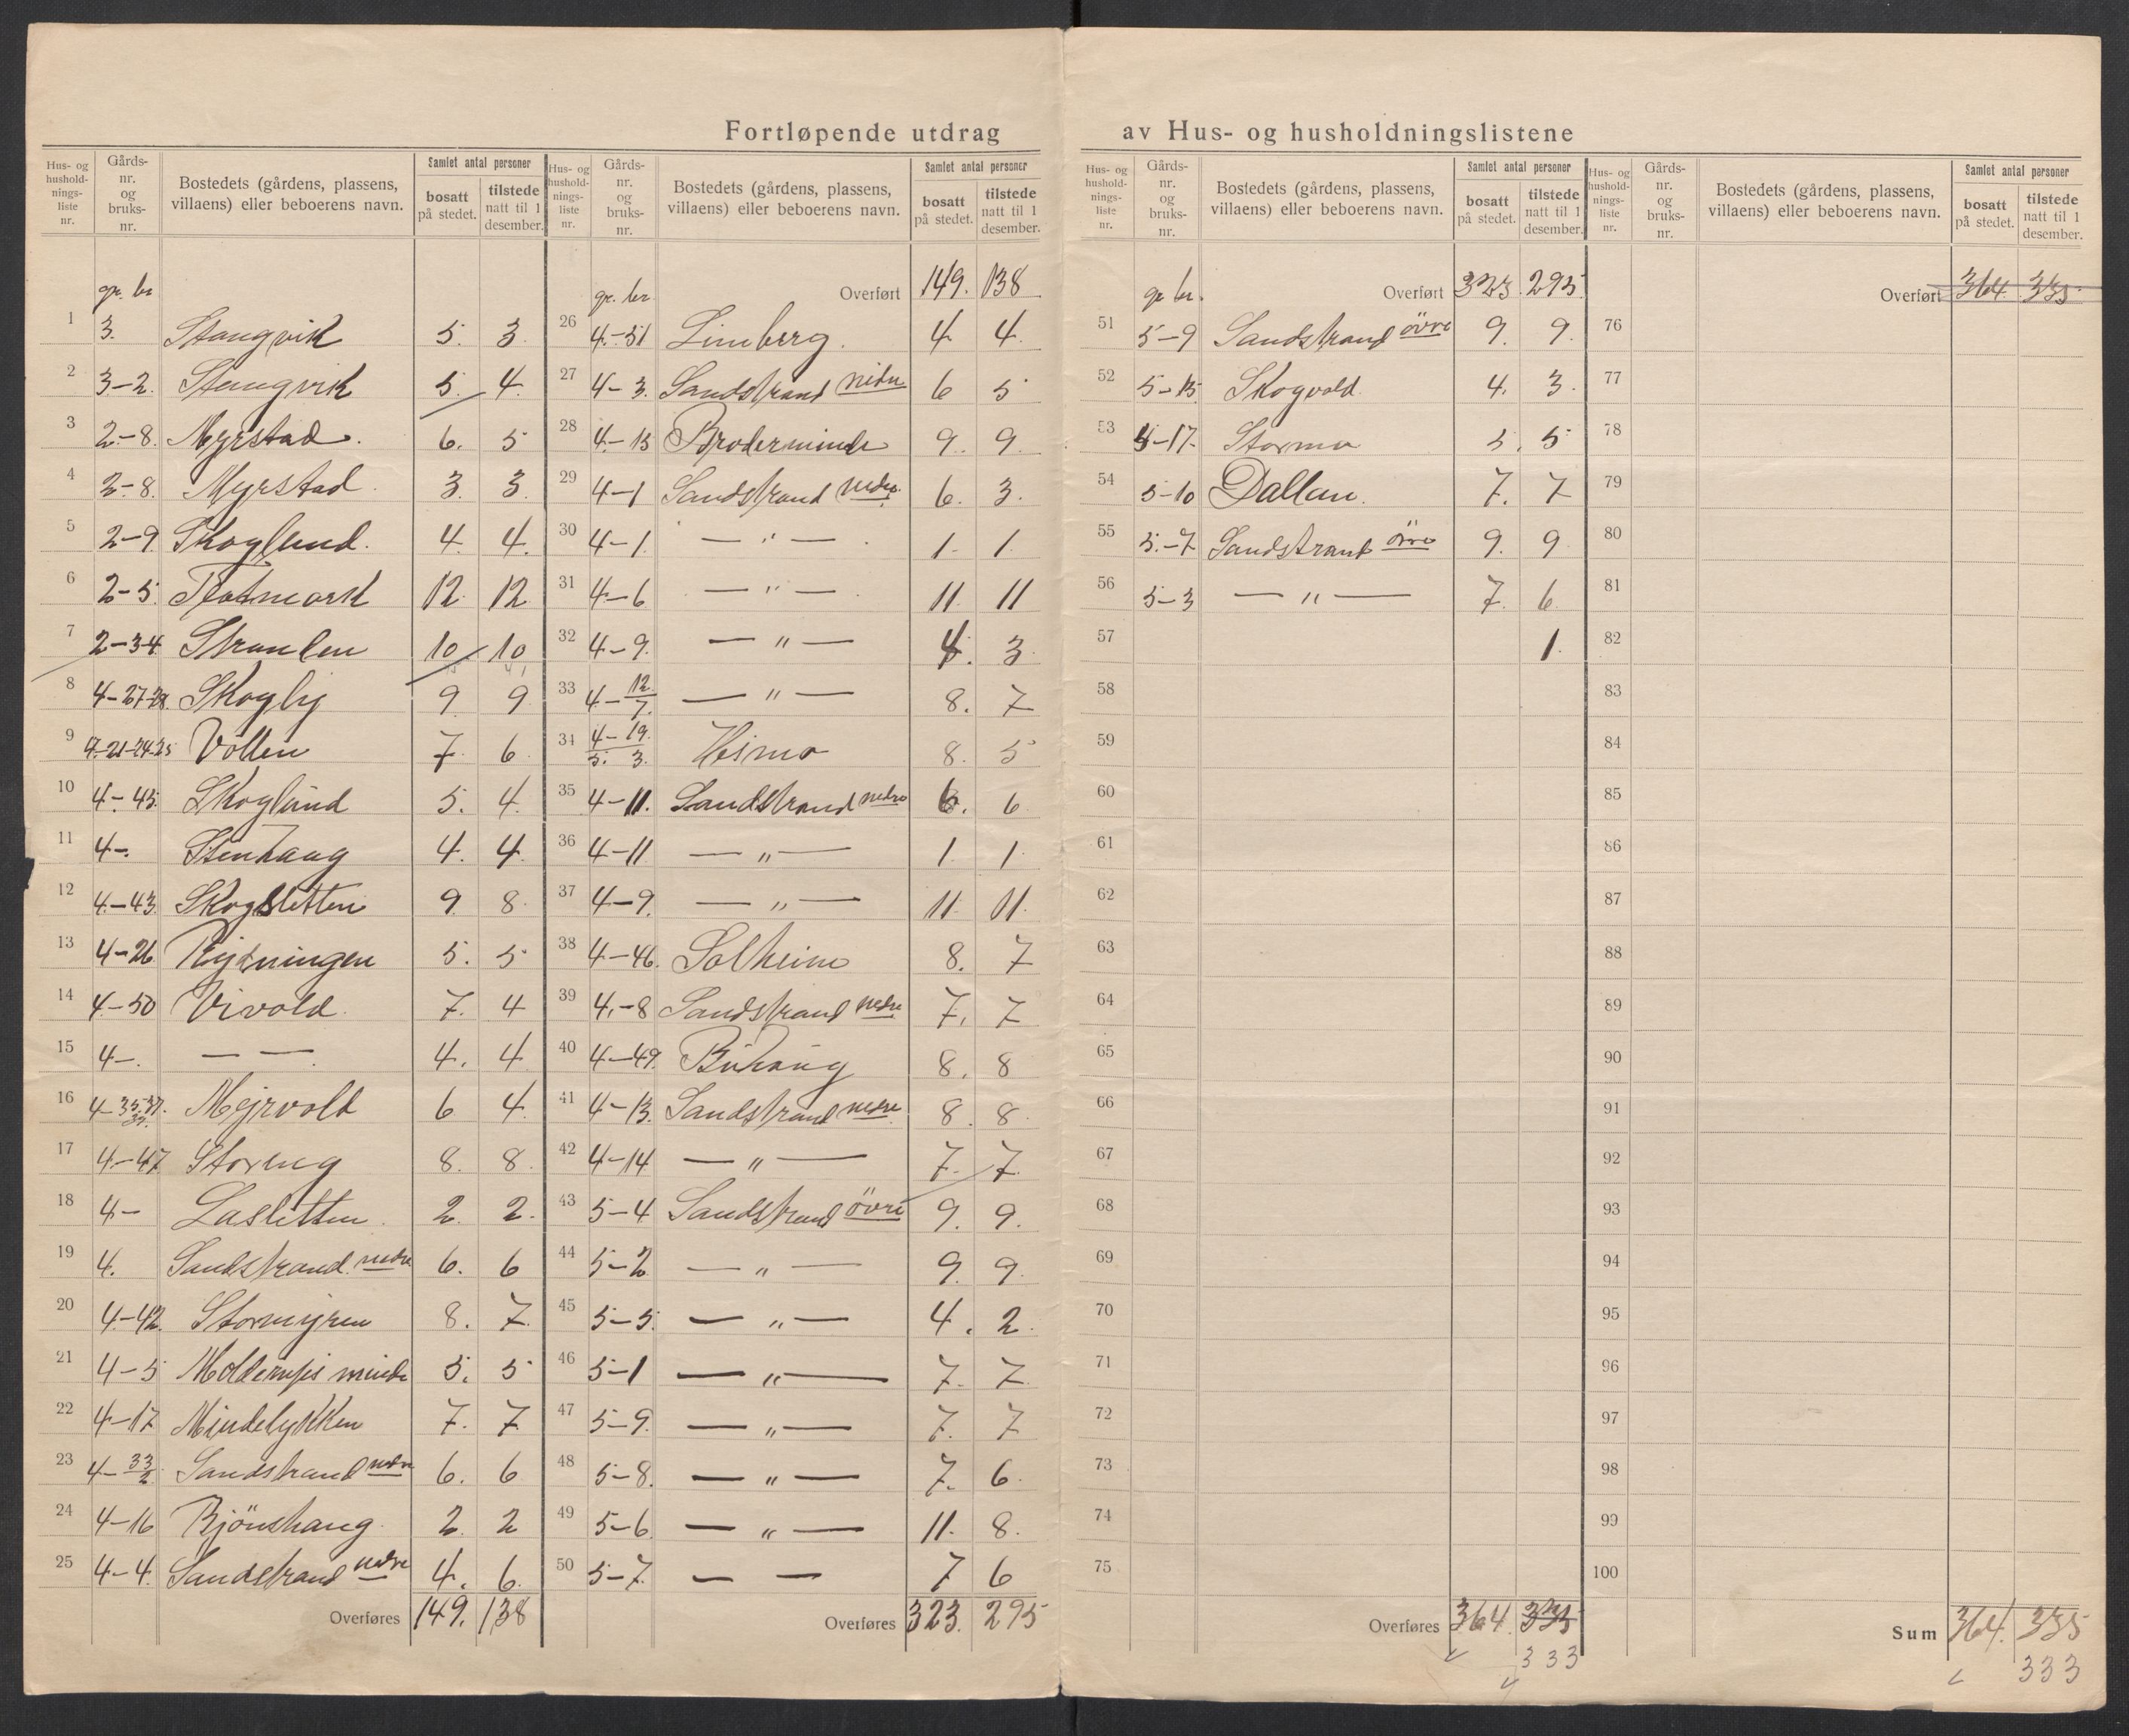 Fortløpende utdrag av Hus- og husholdningslistene
Hus- og hushold- nings- liste nr.
Gårds- nr. og bruks- nr.
Bostedets (gårdens, plassens, villaens) eller beboerens navn.
Samlet antal personer
bosatt på stedet.
tilstede natt til 1 desember.
gr. br
1 3. Stangvik 5. 3
2 3-2. Stangvik 5. 4
3 2-8. Myrstad. 6. 5
4 2-8. Myrstad. 3. 3
5 2-9 Skoglund. 4. 4.
6 2-5. Flatmark 12 12
7 2-34 Stranlen 10 10
8 4-27-28. Skogly 9 9
9 4-21-24-25 Vollen 7. 6
10 4-45. Skoglund 5. 4.
11 4-. Stenhaug 4. 4.
12 4-43. Skogsletten 9. 8
13 4-26 Rydningen 5. 5
14 4-50 Vivold. 7. 4
15 4-. — — 4. 4
16 4-35-37. Myrvold 6 4.
17 4-47 Storeng 8. 8
18 4- Lasletten. 2. 2.
19 4. Sandstrand nedre 6. 6
20 4-42. Stormyren 8. 7
21 4-5 minde 5. 5
22 4-17 Mindelykken 7. 7
23 4-33/2 Sandstrand nedre 6. 6
24 4-16 Bjönshaug. 2. 2
25 4-4. Sandstrand nedre 4. 6.
Overføres 149. 138
Hus- og hushold- nings- liste nr.
Gårds- nr. og bruks- nr.
Bostedets (gårdens, plassens, villaens) eller beboerens navn.
Samlet antal personer
bosatt på stedet.
tilstede natt til 1 desember.
gr. br Overført 149. 138
26 4-51 Limberg. 4 4.
27 4-3. Sandstrand nedre 6 5
28 4-15 Broderminde 9. 9.
29 4-1 Sandstrand nedre. 6. 3.
30 4-1. — " — 1. 1.
31 4-6 — " — 11. 11
32 4-9. — " — 4. 3.
33 4-12/7. — " — 8. 7
34 4-19. 5. 3. Heimo 8. 5
35 4-11. Sandstrand nedre 6. 6
36 4-11 — " — 1. 1.
37 4-9. — " — 11. 11.
38 4-46. Solheim 8. 7
39 4.-8 Sandstrand nedre 7. 7
40 4-49. Buhaug 8. 8
41 4-13. Sandstrand nedre 8. 8.
42 4-14 — " — 7. 7.
43 5-4 Sandstrand övre 9. 9.
44 5-2 — " — 9. 9.
45 5-5. — " — 4. 2.
46 5-1 — " — 7. 7.
47 5-9. — " — 7. 7
48 5-8. — " — 7. 6.
49 5-6. — " — 11. 8.
50 5-7. — — 7 6
Overføres 323. 295
Hus- og hushold- nings- liste nr.
Gårds- nr. og bruks- nr.
Bostedets (gårdens, plassens, villaens) eller beboerens navn.
Samlet antal personer
bosatt på stedet.
tilstede natt til 1 desember.
gr br. Overført 323. 295
51 5-9 Sandstrand övre 9. 9.
52 5-15 Skogvold. 4. 3.
53 5-17. Stormo 5. 5
54 5-10 Dallan. 7. 7
55 5.-7 Sandstrand övre 9. 9
56 5-3 — " — 7. 6
57 1.
58
59
60
61
62
63
64
65
66
67
68
69
70
71
72
73
74
75
Overføres 364. 335
333
Hus- og hushold- nings- liste nr.
Gårds- nr. og bruks- nr.
Bostedets (gårdens, plassens, villaens) eller beboerens navn.
Samlet antal personer
bosatt på stedet.
tilstede natt til 1 desember.
Overført 364 335
76
77
78
79
80
81
82
83
84
85
86
87
88
89
90
91
92
93
94
95
96
97
98
99
100
Sum 364. 335
333